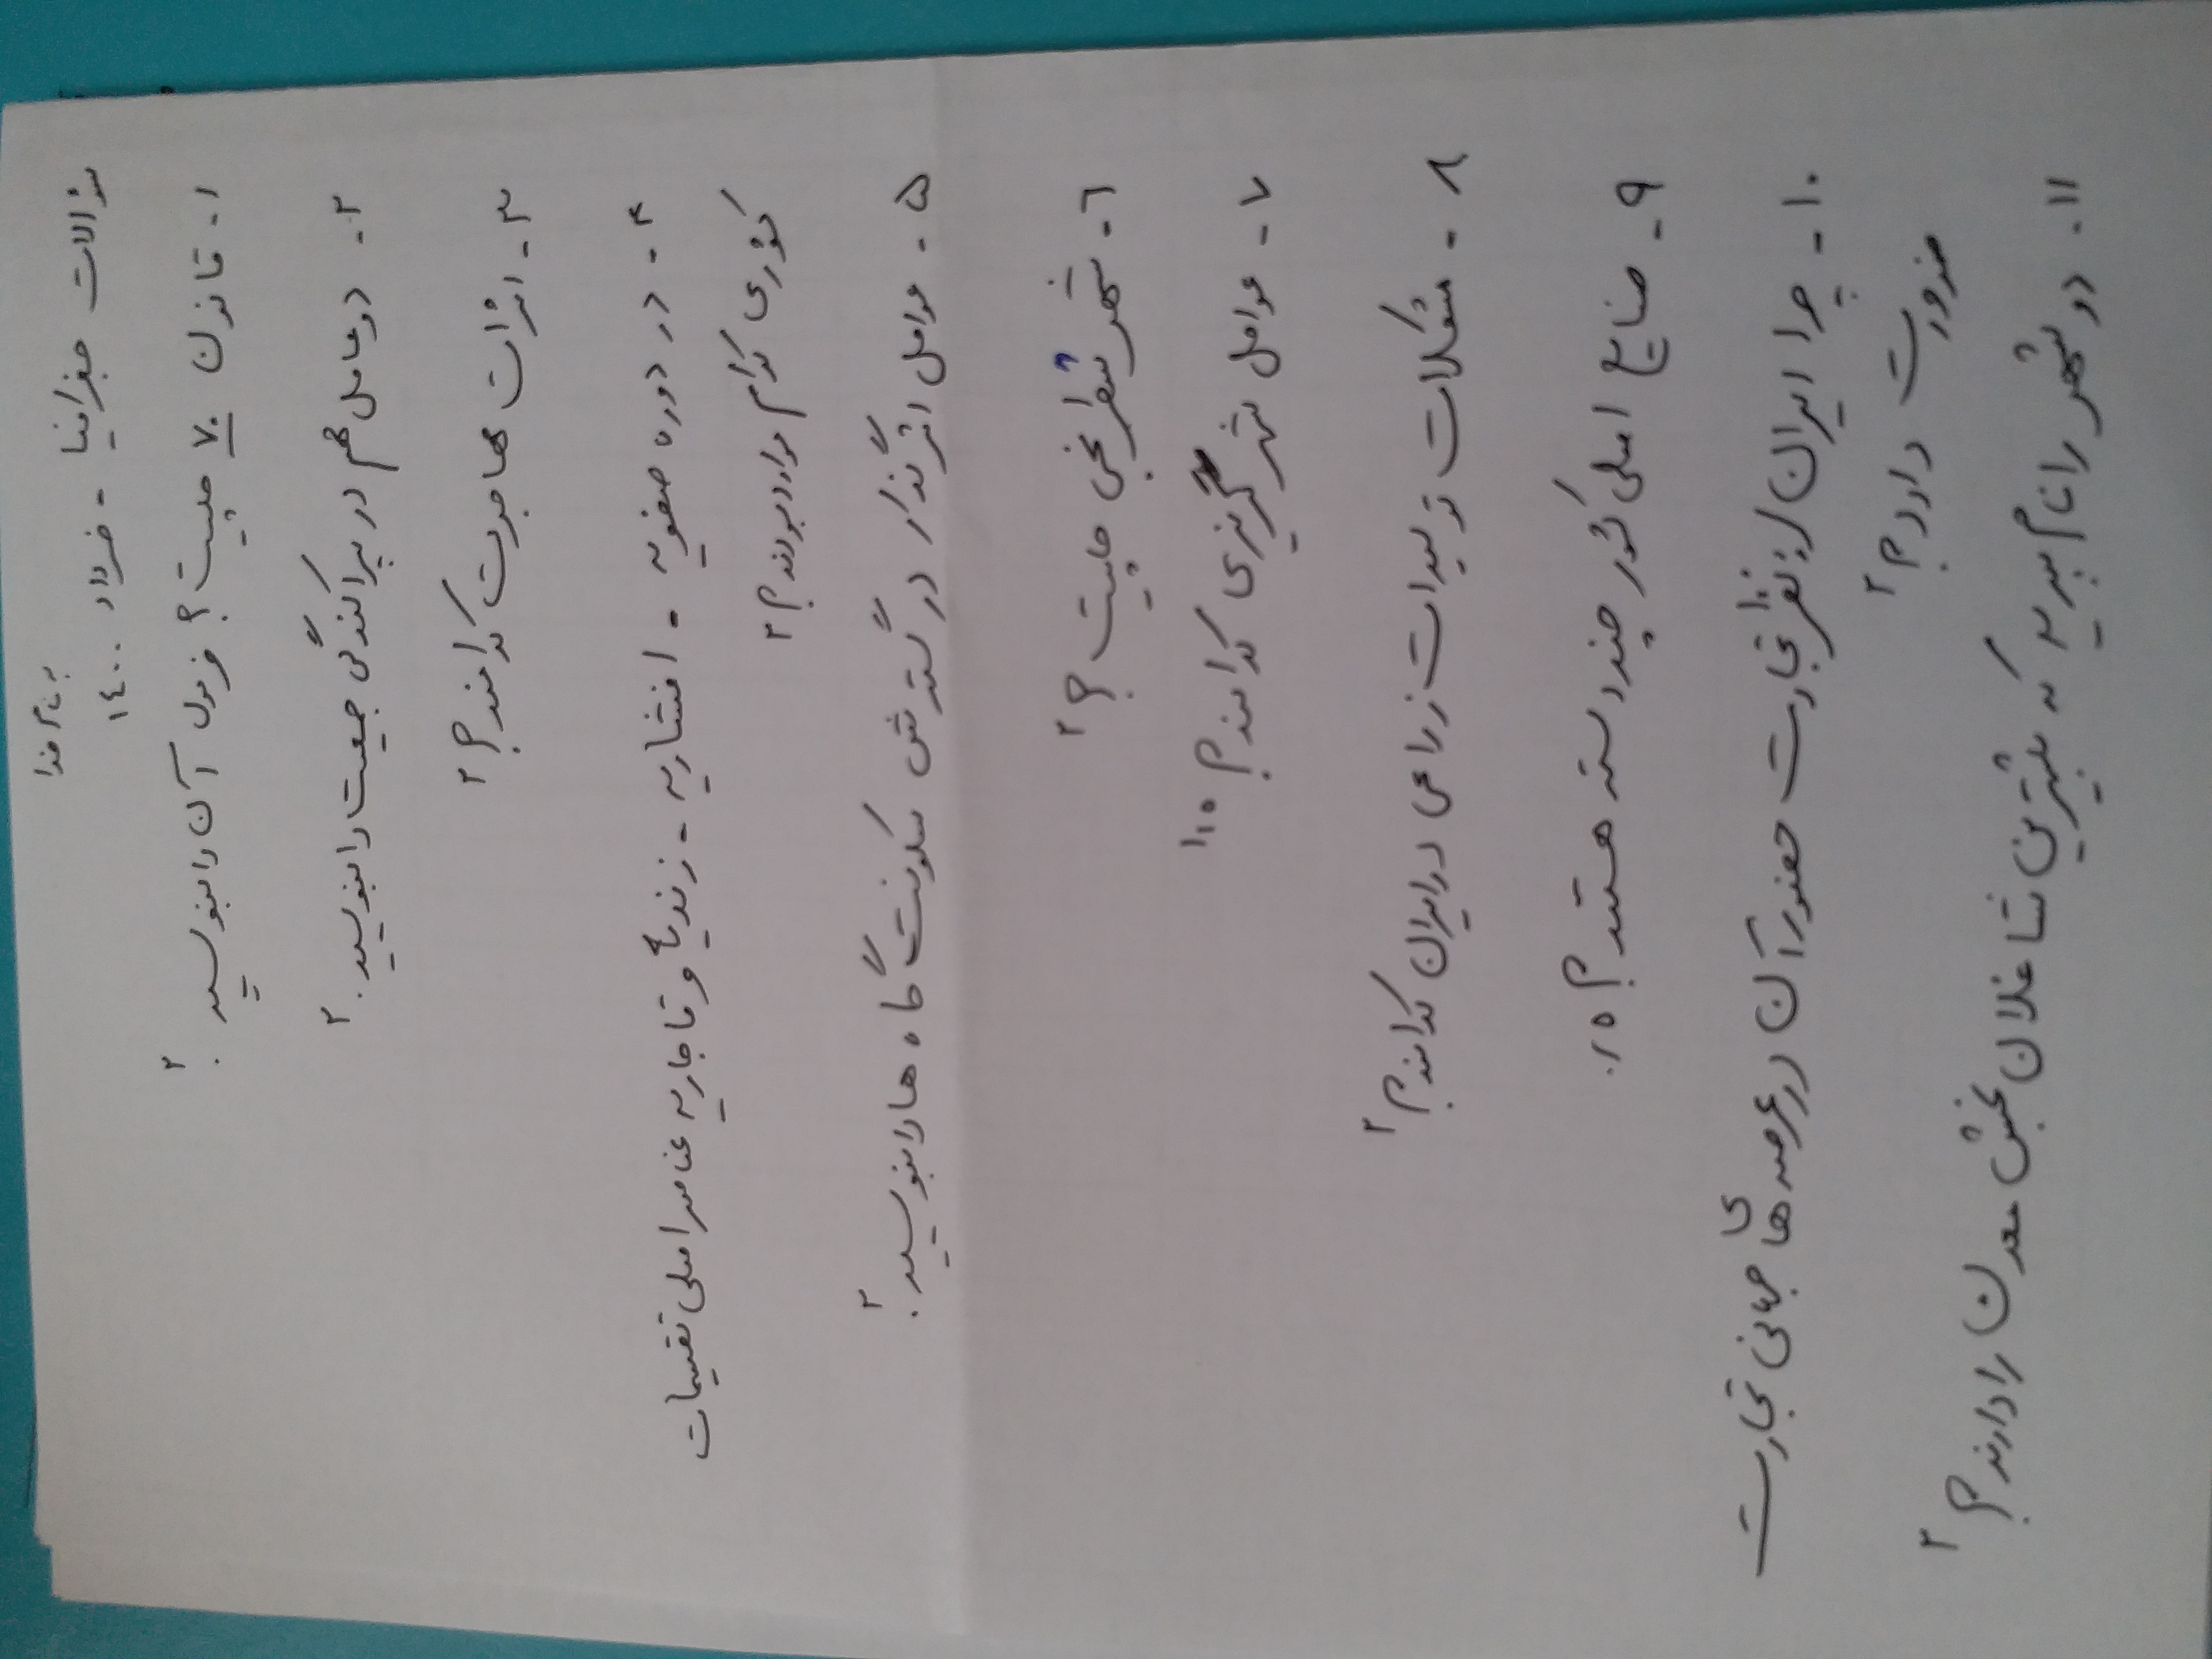 به نام خدا
سؤالات جغرافیا - خرداد ۱۴۰۰
۱- قانون ۷۰ چیست؟ فرمول آن را بنویسید. ۲
۲- دو عامل مهم در پراکندگی جمعیت را بنویسید. ۲
۳- اثرات مهاجرت کدامند؟ ۲
۴- در دوره صفویه - افشاریه - زندیه و قاجاریه عناصر اصلی تقسیمات
کشوری کدام موارد بودند؟ ۲
۵- عوامل اثرگذار در گسترش سکونت گاه ها را بنویسید. ۲
۶- شهر شطرنجی چیست؟ ۲
۷- عوامل شهرگریزی کدامند؟ ۱/۵
۸- مشکلات تولیدات زراعی در ایران کدامند؟ ۲
۹- صنایع اصلی کشور چند دسته هستند؟ ۰/۵
۱۰- چرا ایران از نظر تجارت حضور آن در عرصه های جهانی تجارت
ضرورت دارد؟ ۲
۱۱- دو شهر را نام ببرید که بیشترین شاغلان بخش معدن را دارند؟ ۲